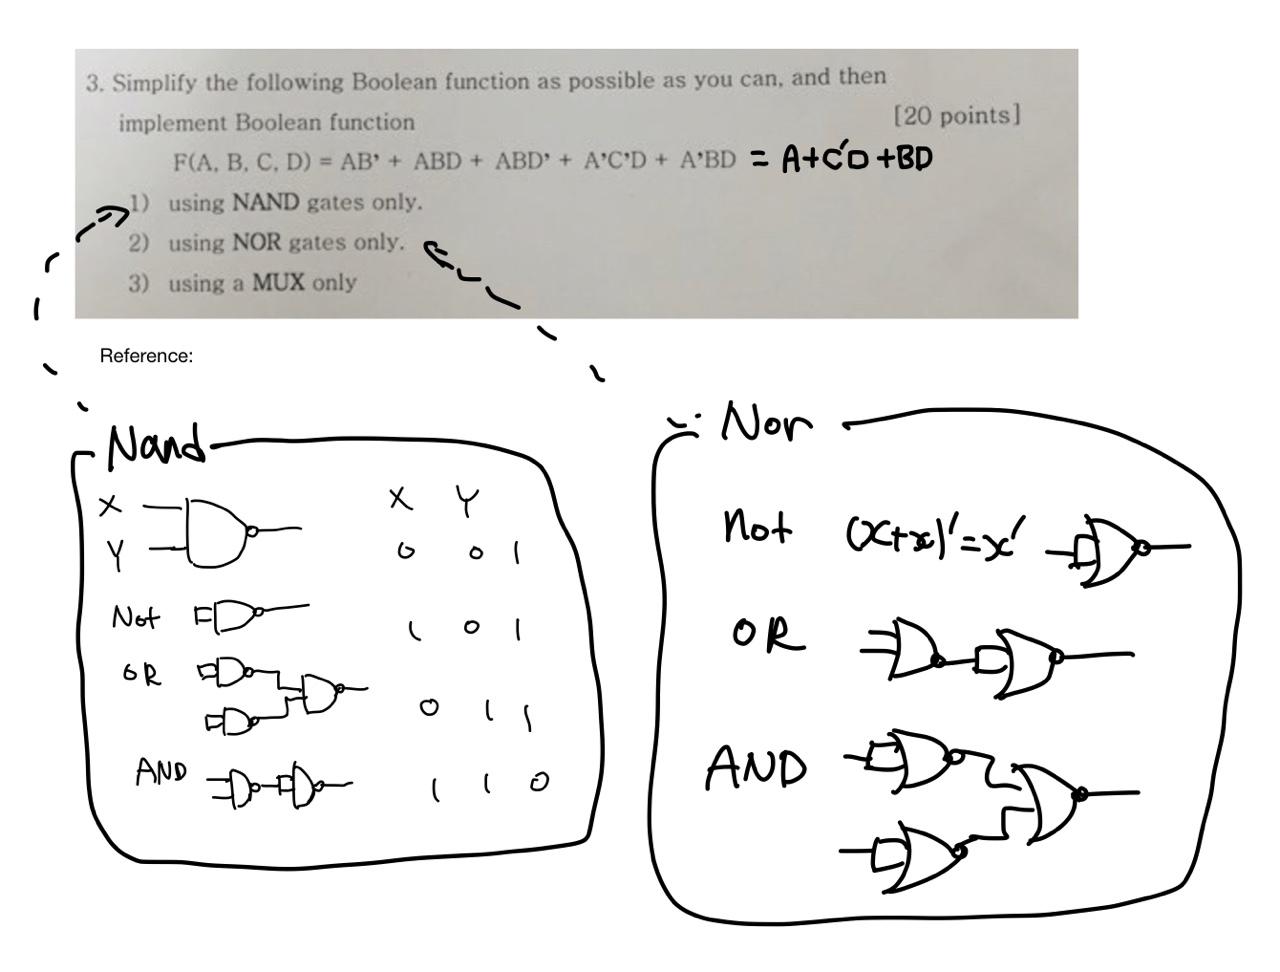 3. Simplify the following Boolean function as possible as you can, and then
implement Boolean function [20 points]
F(A, B, C, D) = AB' + ABD + ABD' + A'C'D + A'BD = A+C'D+BD
1) using NAND gates only.
2) using NOR gates only.
3) using a MUX only
Reference:
Nand
X X Y
Y 0 0 1
Not 1 0 1
OR 0 1 1
AND 1 1 0
Nor
Not (x+x)'=x'
OR
AND